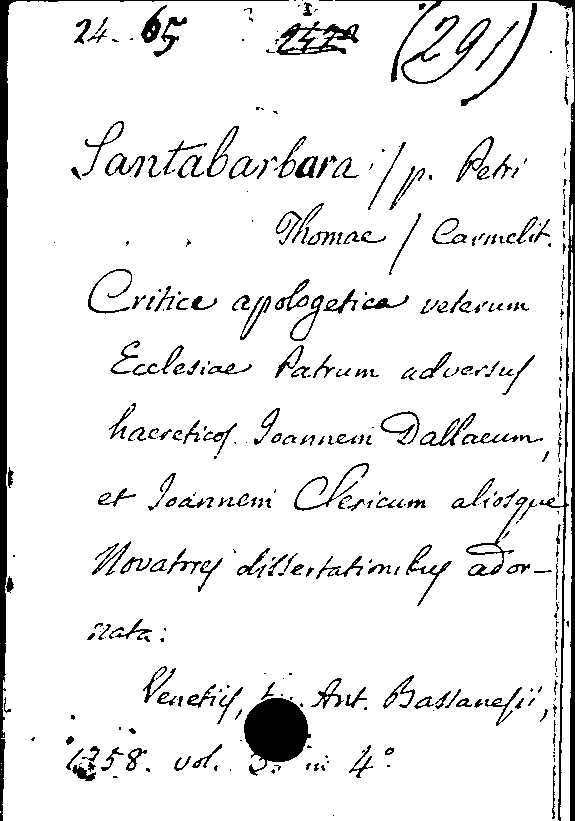 24. 65 (291)
Santabarbara / p. Petri
Thomae / Carmelit.
Critice apologetica veterum
Ecclesiae Patrum adversus
haereticos Ioannem Dallaeum,
et Ioannem Clericum aliosque
Novatores dissertationibus ador-
nata:
Venetiis, Ant. Bassanesii,
1758. vol. in 4°